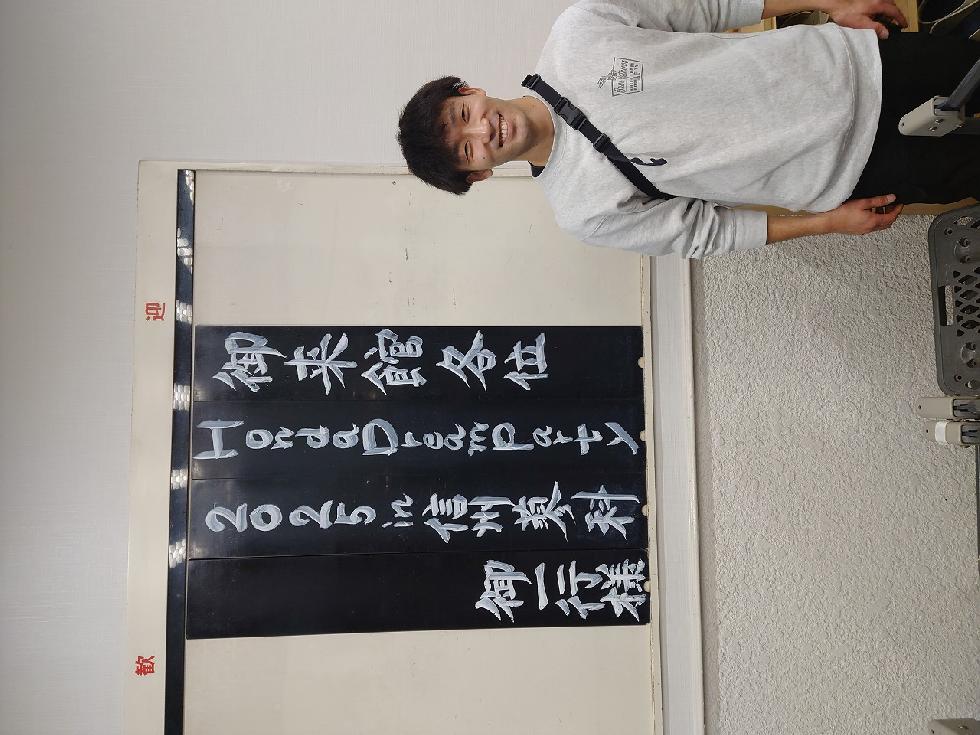 歓迎
御来館各位
Honda Dream Party
2025 in 信州蓼科
御一行様